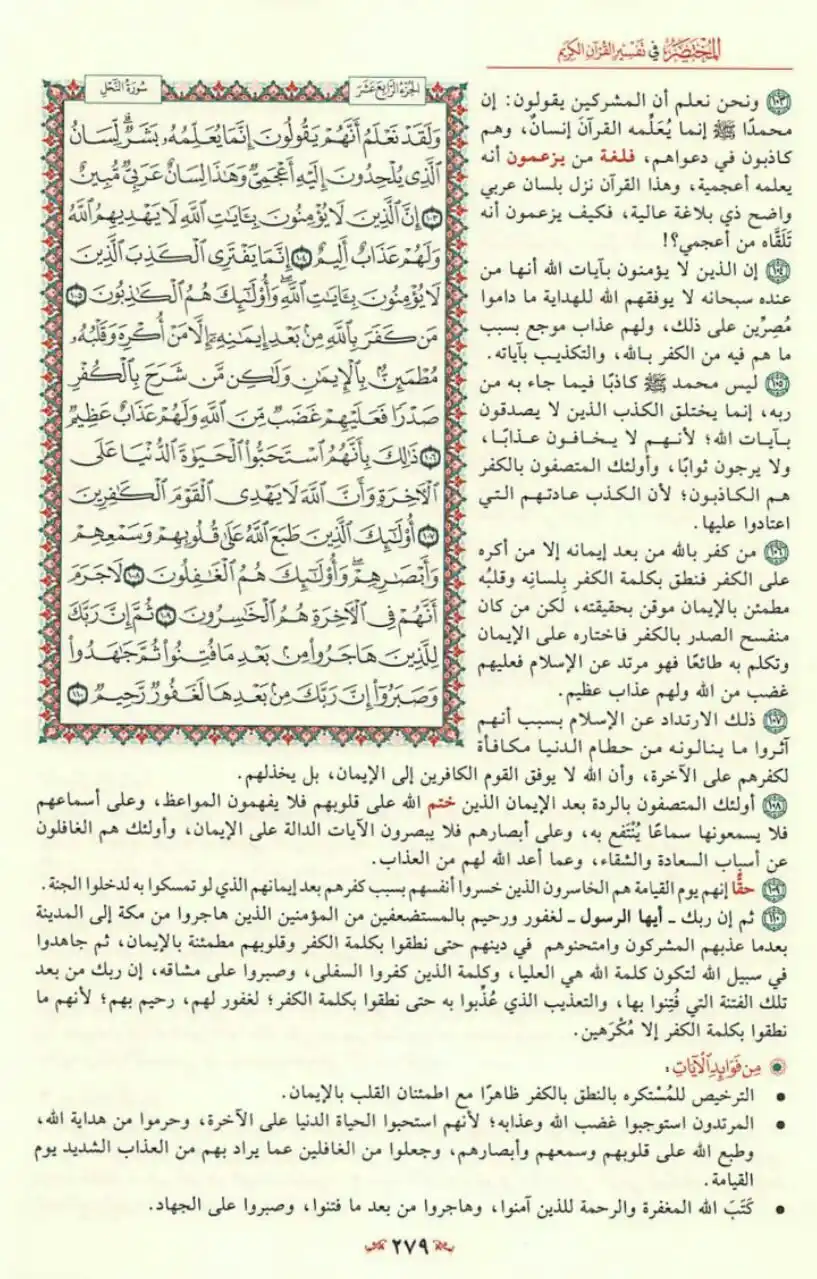 المختصر في تفسير القرآن الكريم
الجزء الرابع عشر
سورة النحل
وَلَقَدْ نَعْلَمُ أَنَّهُمْ يَقُولُونَ إِنَّمَا يُعَلِّمُهُۥ بَشَرٌۗ لِّسَانُ
ٱلَّذِى يُلْحِدُونَ إِلَيْهِ أَعْجَمِىٌّ وَهَٰذَا لِسَانٌ عَرَبِىٌّ مُّبِينٌ
١٠٣ إِنَّ ٱلَّذِينَ لَا يُؤْمِنُونَ بِـَٔايَٰتِ ٱللَّهِ لَا يَهْدِيهِمُ ٱللَّهُ
وَلَهُمْ عَذَابٌ أَلِيمٌ ١٠٤ إِنَّمَا يَفْتَرِى ٱلْكَذِبَ ٱلَّذِينَ
لَا يُؤْمِنُونَ بِـَٔايَٰتِ ٱللَّهِۖ وَأُو۟لَٰٓئِكَ هُمُ ٱلْكَٰذِبُونَ ١٠٥
مَن كَفَرَ بِٱللَّهِ مِنۢ بَعْدِ إِيمَٰنِهِۦٓ إِلَّا مَنْ أُكْرِهَ وَقَلْبُهُۥ
مُطْمَئِنٌّۢ بِٱلْإِيمَٰنِ وَلَٰكِن مَّن شَرَحَ بِٱلْكُفْرِ
صَدْرًا فَعَلَيْهِمْ غَضَبٌ مِّنَ ٱللَّهِ وَلَهُمْ عَذَابٌ عَظِيمٌ
١٠٦ ذَٰلِكَ بِأَنَّهُمُ ٱسْتَحَبُّوا۟ ٱلْحَيَوٰةَ ٱلدُّنْيَا عَلَى
ٱلْءَاخِرَةِ وَأَنَّ ٱللَّهَ لَا يَهْدِى ٱلْقَوْمَ ٱلْكَٰفِرِينَ
١٠٧ أُو۟لَٰٓئِكَ ٱلَّذِينَ طَبَعَ ٱللَّهُ عَلَىٰ قُلُوبِهِمْ وَسَمْعِهِمْ
وَأَبْصَٰرِهِمْۖ وَأُو۟لَٰٓئِكَ هُمُ ٱلْغَٰفِلُونَ ١٠٨ لَا جَرَمَ
أَنَّهُمْ فِى ٱلْءَاخِرَةِ هُمُ ٱلْخَٰسِرُونَ ١٠٩ ثُمَّ إِنَّ رَبَّكَ
لِلَّذِينَ هَاجَرُوا۟ مِنۢ بَعْدِ مَا فُتِنُوا۟ ثُمَّ جَٰهَدُوا۟
وَصَبَرُوٓا۟ إِنَّ رَبَّكَ مِنۢ بَعْدِهَا لَغَفُورٌ رَّحِيمٌ ١١٠
١٠٣ ونحن نعلم أن المشركين يقولون: إن
محمدًا ﷺ إنما يُعَلِّمه القرآنَ إنسانٌ، وهم
كاذبون في دعواهم، فلغة من يزعمون أنه
يعلمه أعجمية، وهذا القرآن نزل بلسان عربي
واضح ذي بلاغة عالية، فكيف يزعمون أنه
تَلَقَّاه من أعجمي؟!
١٠٤ إن الذين لا يؤمنون بآيات الله أنها من
عنده سبحانه لا يوفقهم الله للهداية ما داموا
مُصِرِّين على ذلك، ولهم عذاب موجع بسبب
ما هم فيه من الكفر بالله، والتكذيب بآياته.
١٠٥ ليس محمد ﷺ كاذبًا فيما جاء به من
ربه، إنما يختلق الكذب الذين لا يصدقون
بآيات الله؛ لأنهم لا يخافون عذابًا،
ولا يرجون ثوابًا، وأولئك المتصفون بالكفر
هم الكاذبون؛ لأن الكذب عادتهم التي
اعتادوا عليها.
١٠٦ من كفر بالله من بعد إيمانه إلا من أكره
على الكفر فنطق بكلمة الكفر بِلسانِه وقلبُه
مطمئن بالإيمان موقن بحقيقته، لكن من كان
منفسح الصدر بالكفر فاختاره على الإيمان
وتكلم به طائعًا فهو مرتد عن الإسلام فعليهم
غضب من الله ولهم عذاب عظيم.
١٠٧ ذلك الارتداد عن الإسلام بسبب أنهم
آثروا ما ينالونه من حطام الدنيا مكافأة
لكفرهم على الآخرة، وأن الله لا يوفق القوم الكافرين إلى الإيمان، بل يخذلهم.
١٠٨ أولئك المتصفون بالردة بعد الإيمان الذين ختم الله على قلوبهم فلا يفهمون المواعظ، وعلى أسماعهم
فلا يسمعونها سماعًا يُنْتَفع به، وعلى أبصارهم فلا يبصرون الآيات الدالة على الإيمان، وأولئك هم الغافلون
عن أسباب السعادة والشقاء، وعما أعد الله لهم من العذاب.
١٠٩ حقًّا إنهم يوم القيامة هم الخاسرون الذين خسروا أنفسهم بسبب كفرهم بعد إيمانهم الذي لو تمسكوا به لدخلوا الجنة.
١١٠ ثم إن ربك - أيها الرسول - لغفور ورحيم بالمستضعفين من المؤمنين الذين هاجروا من مكة إلى المدينة
بعدما عذبهم المشركون وامتحنوهم في دينهم حتى نطقوا بكلمة الكفر وقلوبهم مطمئنة بالإيمان، ثم جاهدوا
في سبيل الله لتكون كلمة الله هي العليا، وكلمة الذين كفروا السفلى، وصبروا على مشاقه، إن ربك من بعد
تلك الفتنة التي فُتِنوا بها، والتعذيب الذي عُذِّبوا به حتى نطقوا بكلمة الكفر؛ لغفور لهم، رحيم بهم؛ لأنهم ما
نطقوا بكلمة الكفر إلا مُكْرَهين.
من فوائد الآيات:
• الترخيص للمُسْتكره بالنطق بالكفر ظاهرًا مع اطمئنان القلب بالإيمان.
• المرتدون استوجبوا غضب الله وعذابه؛ لأنهم استحبوا الحياة الدنيا على الآخرة، وحرموا من هداية الله،
وطبع الله على قلوبهم وسمعهم وأبصارهم، وجعلوا من الغافلين عما يراد بهم من العذاب الشديد يوم
القيامة.
• كَتَبَ الله المغفرة والرحمة للذين آمنوا، وهاجروا من بعد ما فتنوا، وصبروا على الجهاد.
٢٧٩